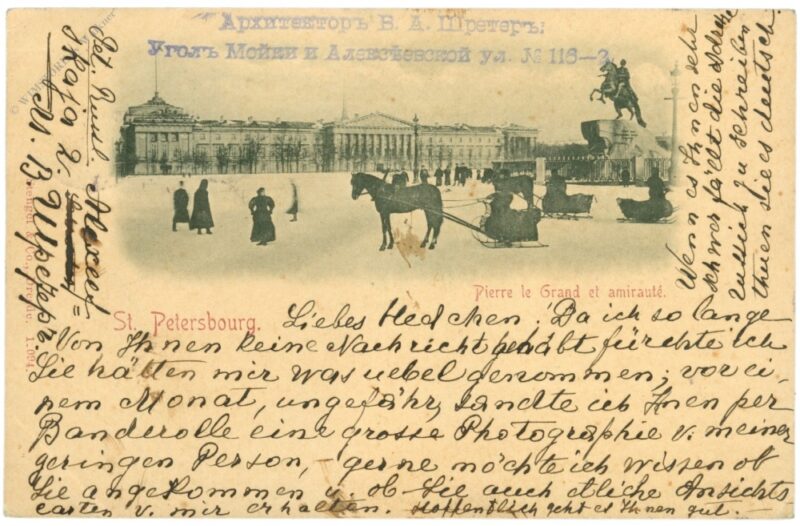 Архитекторъ В. А. Шретеръ:
Уголъ Мойки и Алексѣевской ул. № 116—2
Pierre le Grand et amirauté.
St. Petersbourg.
Liebes Hedchen! Da ich so lange
Von Ihnen keine Nachricht gehabt fürchte ich
Sie hätten mir was uebel genommen; vor ei-
nem Monat, ungefähr, sandte ich Ihnen per
Banderolle eine grosse Photographie v. meiner
geringen Person, - gerne möchte ich wissen ob
Sie angekommen u. ob Sie auch etliche Ansichts
carten v. mir erhalten. Hoffentlich geht es Ihnen gut. -
Wenn es Ihnen sehr
schwer fällt die Adresse
russisch zu schreiben
thuen sie es deutsch.
Alexeef=
skaja 2.
W. Schreter.